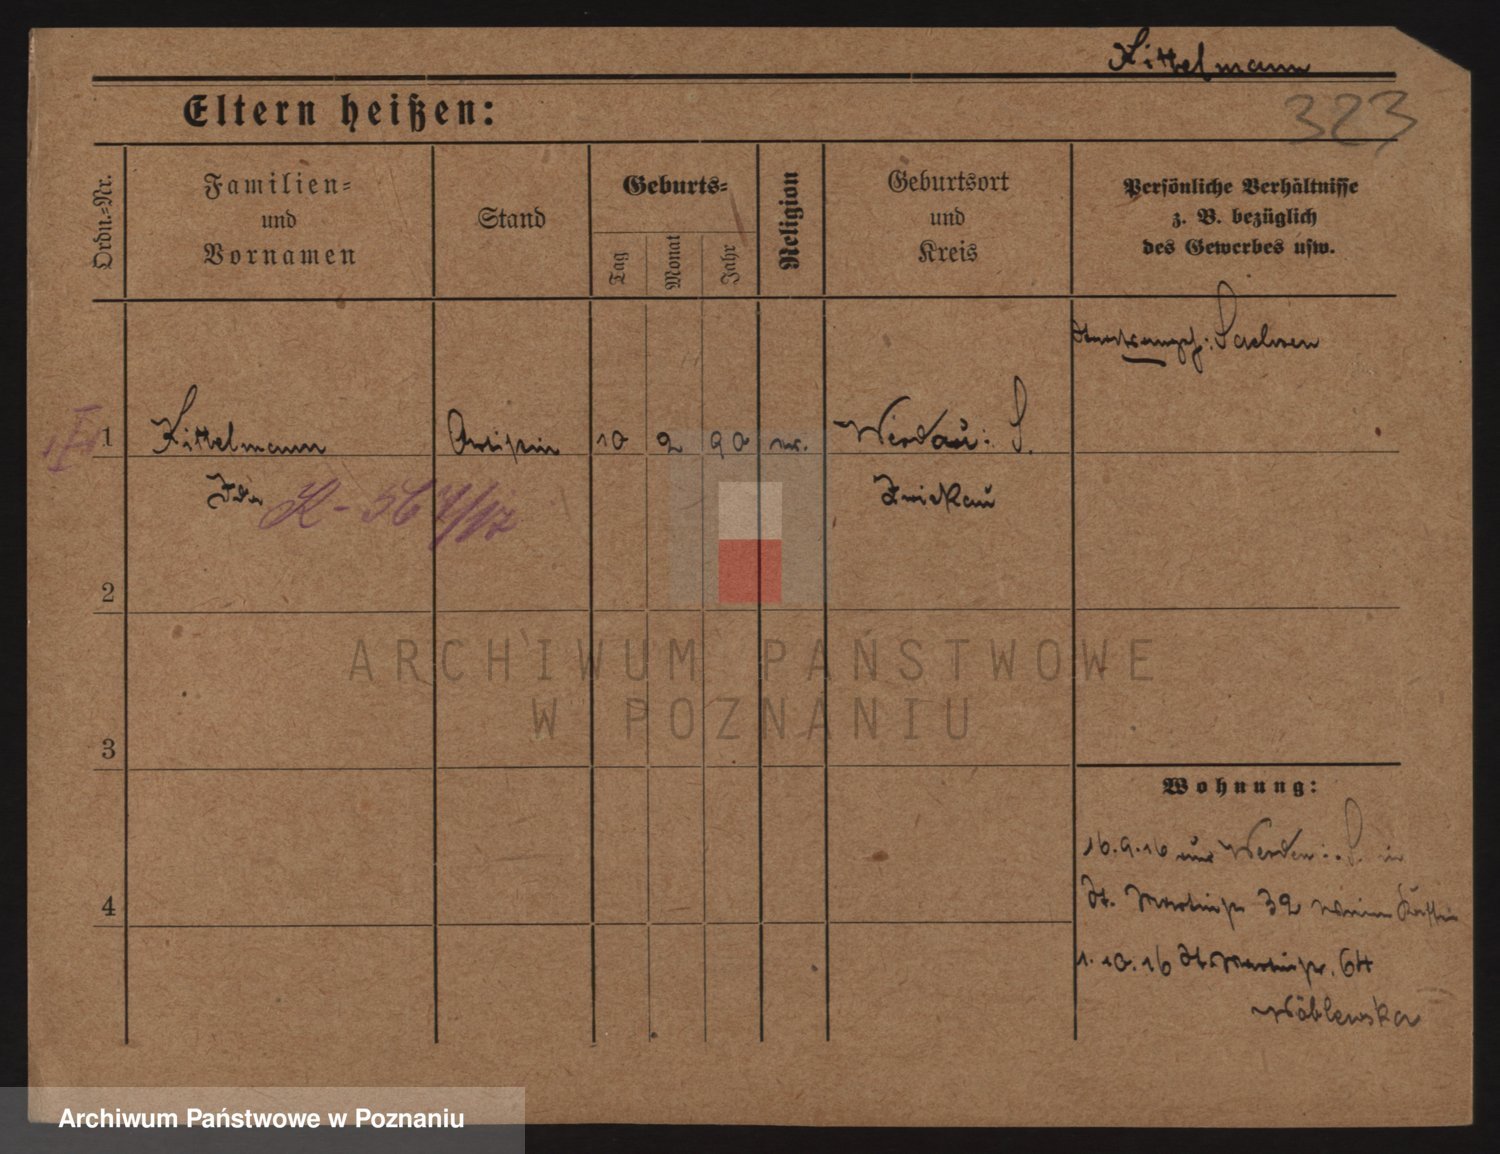 Kittelmann
323
Eltern heißen:
Ordn.-Nr.
Familien-
und
Vornamen
Stand
Geburts-
Tag
Monat
Jahr
Religion
Geburtsort
und
Kreis
Persönliche Verhältnisse
z. B. bezüglich
des Gewerbes usw.
Sachsen
1 Kittelmann 10 2 90 Werdau i. S.
Ida K-567/17 Zwickau
2
3
4
Wohnung:
16.9.16 aus Werdau i. S. in
St. Martinstr 32
1.10.16 St. Martinstr. 64
ARCHIWUM PAŃSTWOWE
W POZNANIU
Archiwum Państwowe w Poznaniu